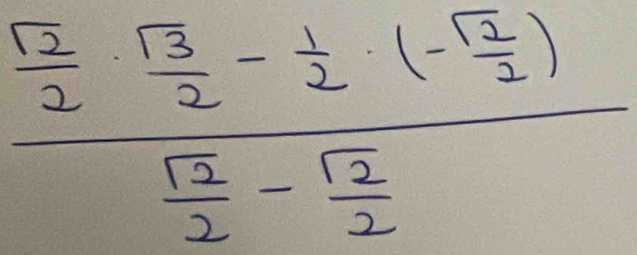 \frac{\frac{\sqrt{2}}{2} \cdot \frac{\sqrt{3}}{2} - \frac{1}{2} \cdot (-\frac{\sqrt{2}}{2})}{\frac{\sqrt{2}}{2} - \frac{\sqrt{2}}{2}}